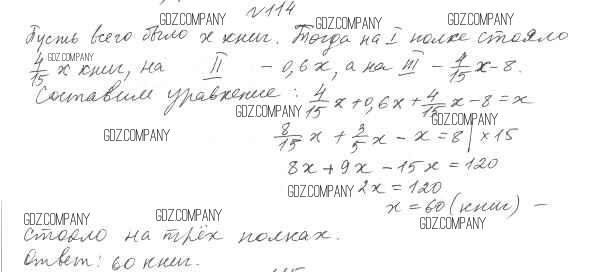 №114
GDZ.COMPANY GDZ.COMPANY GDZ.COMPANY
Пусть всего было x книг. Тогда на I полке стояло
GDZ.COMPANY
4/15 x книг, на II - 0,6x, а на III - 4/15 x - 8.
Составим уравнение: 4/15 x + 0,6x + 4/15 x - 8 = x
GDZ.COMPANY GDZ.COMPANY
GDZ.COMPANY 8/15 x + 3/5 x - x = 8 | ×15
8x + 9x - 15x = 120
GDZ.COMPANY 2x = 120
x = 60 (книг) -
GDZ.COMPANY GDZ.COMPANY GDZ.COMPANY
стояло на трёх полках.
Ответ: 60 книг.